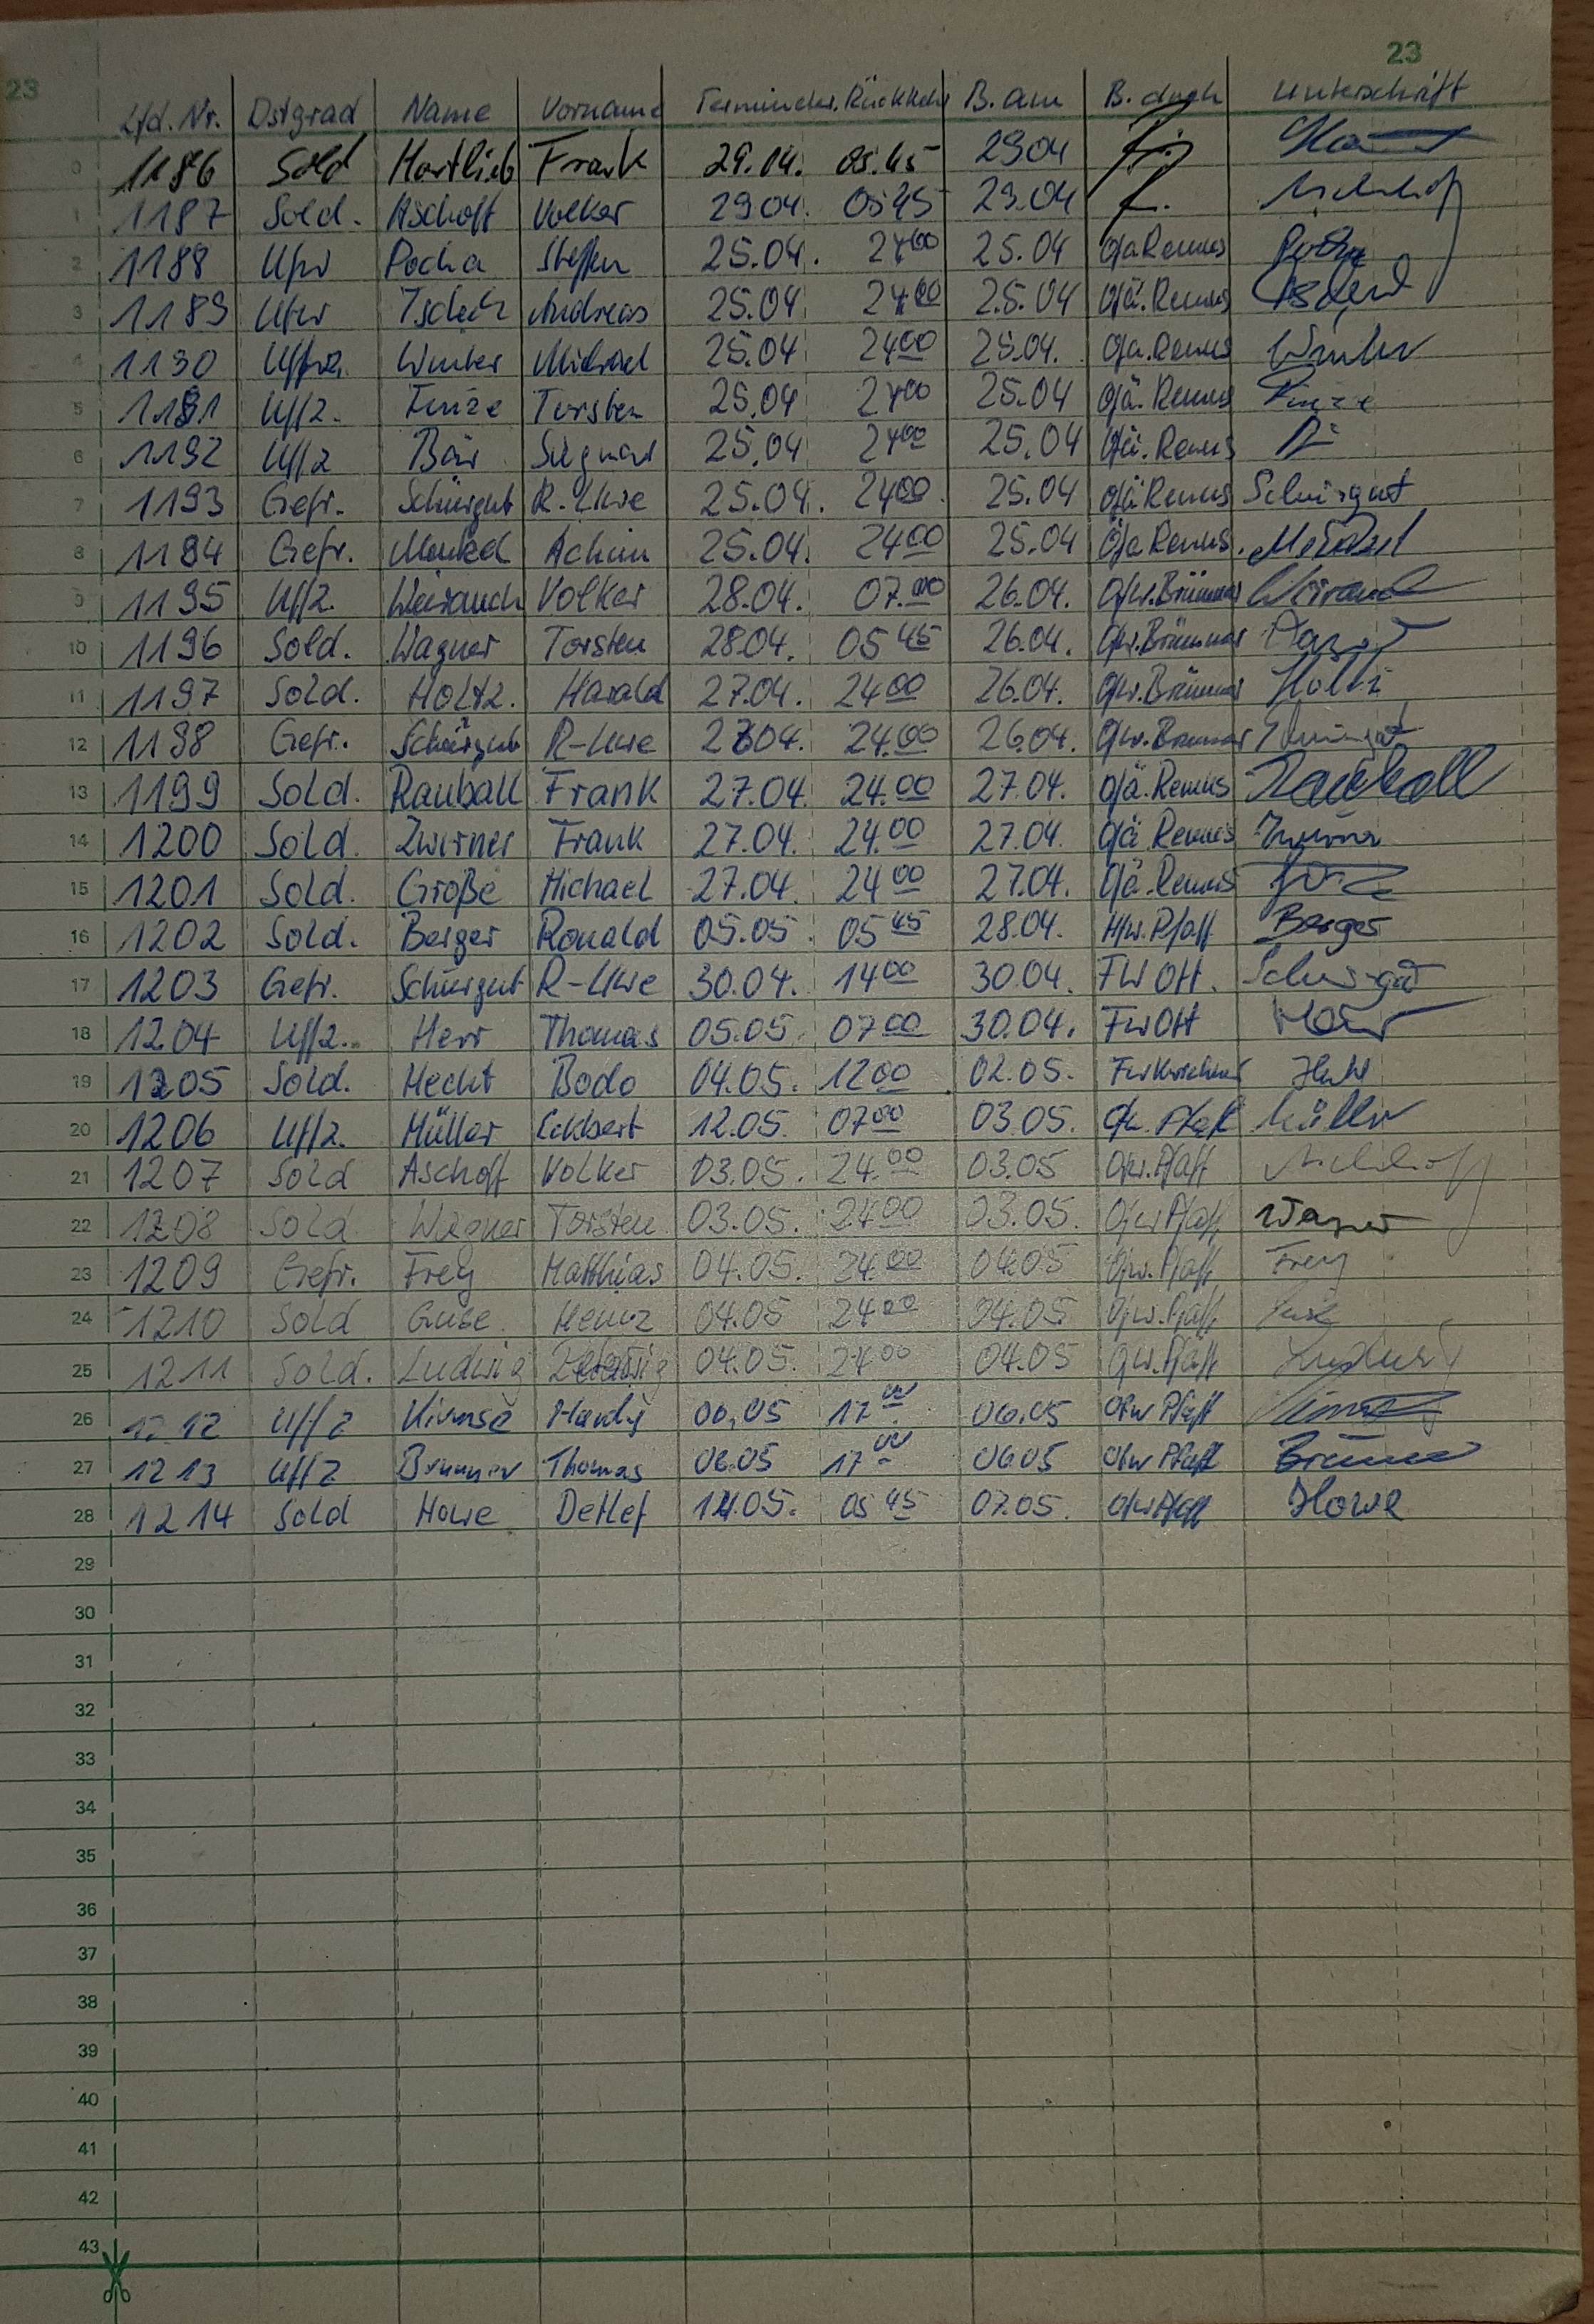 23 23
Lfd. Nr. Dstgrad Name Vorname Termin der Rückkehr B. am B. durch Unterschrift
0 1186 Sold Hartlieb Frank 29.04. 05.45 29.04
1 1187 Sold. Aschoff Volker 29.04. 05 45 29.04
2 1188 Ufw Pocha Steffen 25.04. 24 00 25.04 Ofä Remus Pocha
3 1189 Ufw Andreas 25.04 24 00 25.04 Ofä. Remus
4 1190 Uffz. Winter Michael 25.04 24 00 25.04. Ofä. Remus Winter
5 1191 Uffz. Finze Torsten 25.04 24 00 25.04 Ofä. Remus Finze
6 1192 Uffz Bär Siegmar 25.04 24 00 25.04 Ofä. Remus
7 1193 Gefr. Schürgut R.-Uwe 25.04. 24 00 25.04 Ofä Remus Schürgut
8 1194 Gefr. Menkel Achim 25.04. 24 00 25.04 Ofä Remus
9 1195 Uffz. Weirauch Volker 28.04. 07.00 26.04. Ofw. Brümmer Weirauch
10 1196 Sold. Wagner Torsten 28.04. 05 45 26.04. Ofw. Brümmer
11 1197 Sold. Holtz. Harald 27.04. 24 00 26.04. Ofw. Brümmer Holtz
12 1198 Gefr. Schürgut R-Uwe 26.04. 24.00 26.04. Ofw. Brümmer Schürgut
13 1199 Sold. Rauball Frank 27.04. 24.00 27.04. Ofä. Remus Rauball
14 1200 Sold. Zwirner Frank 27.04. 24.00 27.04. Ofä Remus Zwirner
15 1201 Sold. Große Michael 27.04. 24 00 27.04. Ofä. Remus
16 1202 Sold. Berger Ronald 05.05 05 45 28.04. Hfw. Pfaff Berger
17 1203 Gefr. Schürgut R-Uwe 30.04. 14 00 30.04. FW Ott. Schürgut
18 1204 Uffz.. Herr Thomas 05.05. 07 00 30.04. Fw Ott Herr
19 1205 Sold. Hecht Bodo 04.05. 12 00 02.05. Hecht
20 1206 Uffz. Müller Eckbert 12.05. 07 00 03.05. Ofw. Pfaff Müller
21 1207 Sold Aschoff Volker 03.05. 24.00 03.05 Ofw. Pfaff Aschoff
22 1208 Sold Wagner Torsten 03.05. 24 00 03.05. Ofw Pfaff Wagner
23 1209 Gefr. Frey Matthias 04.05. 24.00 04.05 Ofw. Pfaff Frey
24 1210 Sold Guse Heinz 04.05 24 00 04.05 Ofw. Pfaff Guse
25 1211 Sold. Ludwig 04.05. 24 00 04.05 Ofw. Pfaff Ludwig
26 1212 Uffz Hardy 06.05 17 00 06.05 Ofw Pfaff
27 1213 Uffz Brümmer Thomas 06.05 17 00 06.05 Ofw Pfaff
28 1214 Sold Howe Detlef 14.05. 05 45 07.05. Ofw Pfaff Howe
29
30
31
32
33
34
35
36
37
38
39
40
41
42
43